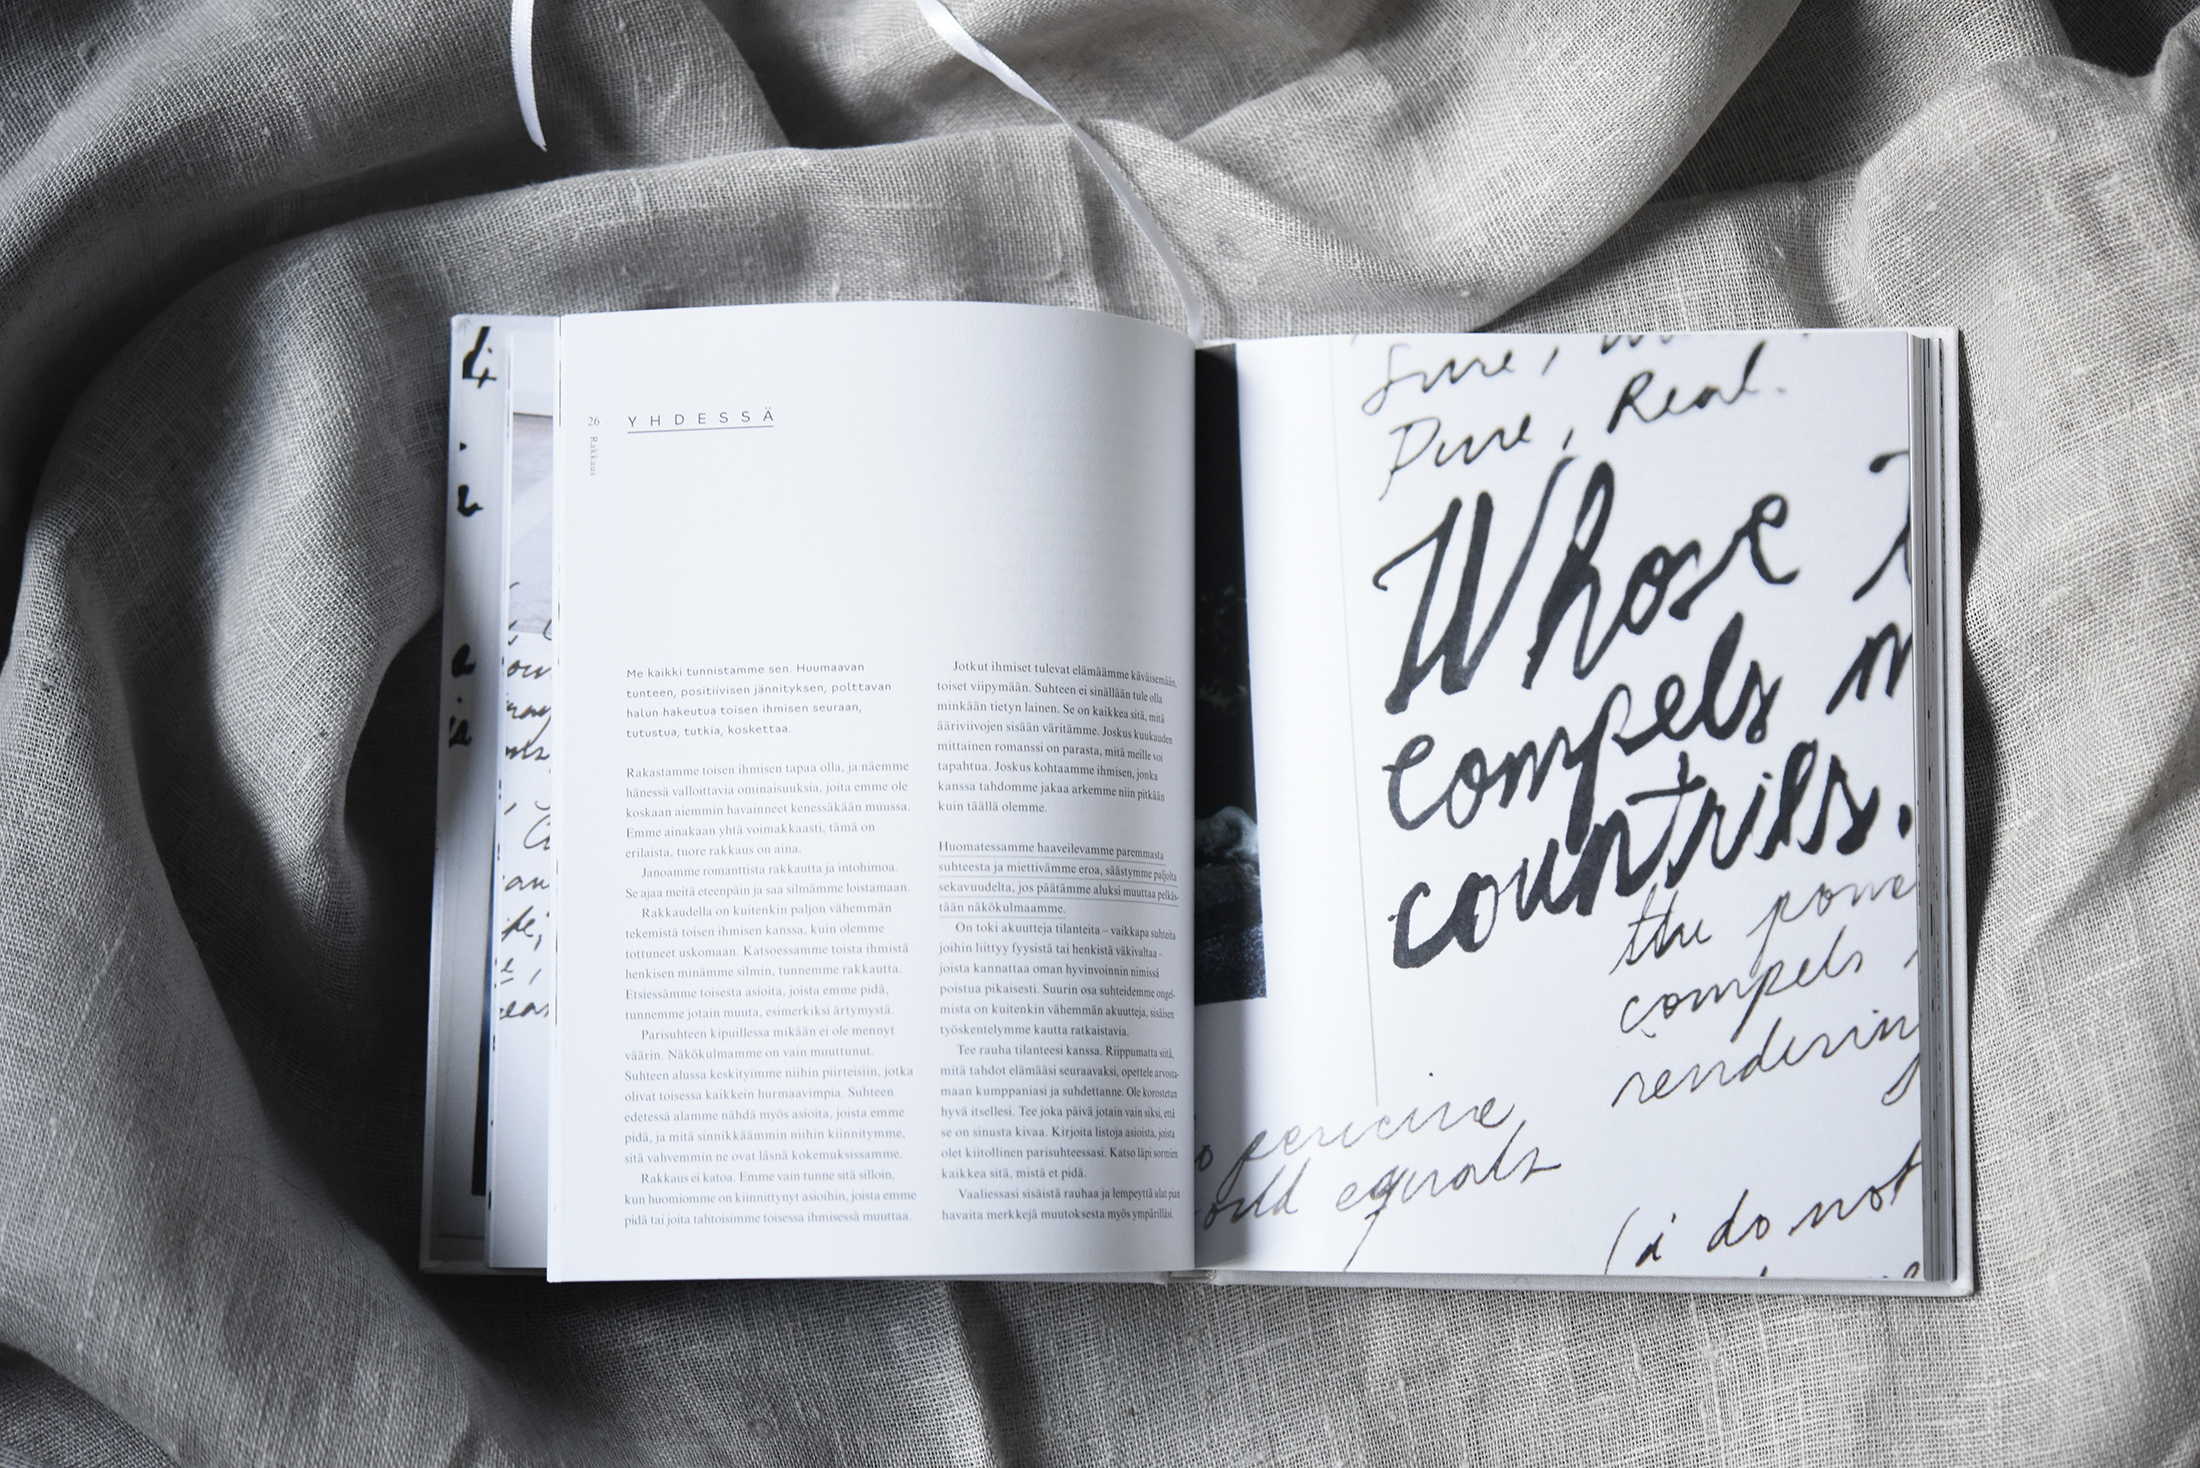 26
Rakkaus
YHDESSÄ
Me kaikki tunnistamme sen. Huumaavan
tunteen, positiivisen jännityksen, polttavan
halun hakeutua toisen ihmisen seuraan,
tutustua, tutkia, koskettaa.
Rakastamme toisen ihmisen tapaa olla, ja näemme
hänessä valloittavia ominaisuuksia, joita emme ole
koskaan aiemmin havainneet kenessäkään muussa.
Emme ainakaan yhtä voimakkaasti, tämä on
erilaista, tuore rakkaus on aina.
Janoamme romanttista rakkautta ja intohimoa.
Se ajaa meitä eteenpäin ja saa silmämme loistamaan.
Rakkaudella on kuitenkin paljon vähemmän
tekemistä toisen ihmisen kanssa, kuin olemme
tottuneet uskomaan. Katsoessamme toista ihmistä
henkisen minämme silmin, tunnemme rakkautta.
Etsiessämme toisesta asioita, joista emme pidä,
tunnemme jotain muuta, esimerkiksi ärtymystä.
Parisuhteen kipuillessa mikään ei ole mennyt
väärin. Näkökulmamme on vain muuttunut.
Suhteen alussa keskityimme niihin piirteisiin, jotka
olivat toisessa kaikkein hurmaavimpia. Suhteen
edetessä alamme nähdä myös asioita, joista emme
pidä, ja mitä sinnikkäämmin niihin kiinnitymme,
sitä vahvemmin ne ovat läsnä kokemuksissamme.
Rakkaus ei katoa. Emme vain tunne sitä silloin,
kun huomiomme on kiinnittynyt asioihin, joista emme
pidä tai joita tahtoisimme toisessa ihmisessä muuttaa.
Jotkut ihmiset tulevat elämäämme käväisemään,
toiset viipymään. Suhteen ei sinällään tule olla
minkään tietyn lainen. Se on kaikkea sitä, mitä
ääriviivojen sisään väritämme. Joskus kuukauden
mittainen romanssi on parasta, mitä meille voi
tapahtua. Joskus kohtaamme ihmisen, jonka
kanssa tahdomme jakaa arkemme niin pitkään
kuin täällä olemme.
Huomatessamme haaveilevamme paremmasta
suhteesta ja miettivämme eroa, säästymme paljolta
sekavuudelta, jos päätämme aluksi muuttaa pelkäs-
tään näkökulmaamme.
On toki akuutteja tilanteita – vaikkapa suhteita
joihin liittyy fyysistä tai henkistä väkivaltaa –
joista kannattaa oman hyvinvoinnin nimissä
poistua pikaisesti. Suurin osa suhteidemme ongel-
mista on kuitenkin vähemmän akuutteja, sisäisen
työskentelymme kautta ratkaistavia.
Tee rauha tilanteesi kanssa. Riippumatta siitä,
mitä tahdot elämääsi seuraavaksi, opettele arvosta-
maan kumppaniasi ja suhdettanne. Ole korostetun
hyvä itsellesi. Tee joka päivä jotain vain siksi, että
se on sinusta kivaa. Kirjoita listoja asioista, joista
olet kiitollinen parisuhteessasi. Katso läpi sormien
kaikkea sitä, mistä et pidä.
Vaaliessasi sisäistä rauhaa ja lempeyttä alat pian
havaita merkkejä muutoksesta myös ympärilläsi.
Sure,
Pure, Real.
Whose
compels
countries.
the powe
compels
rendering
perceive
equals
(i do not